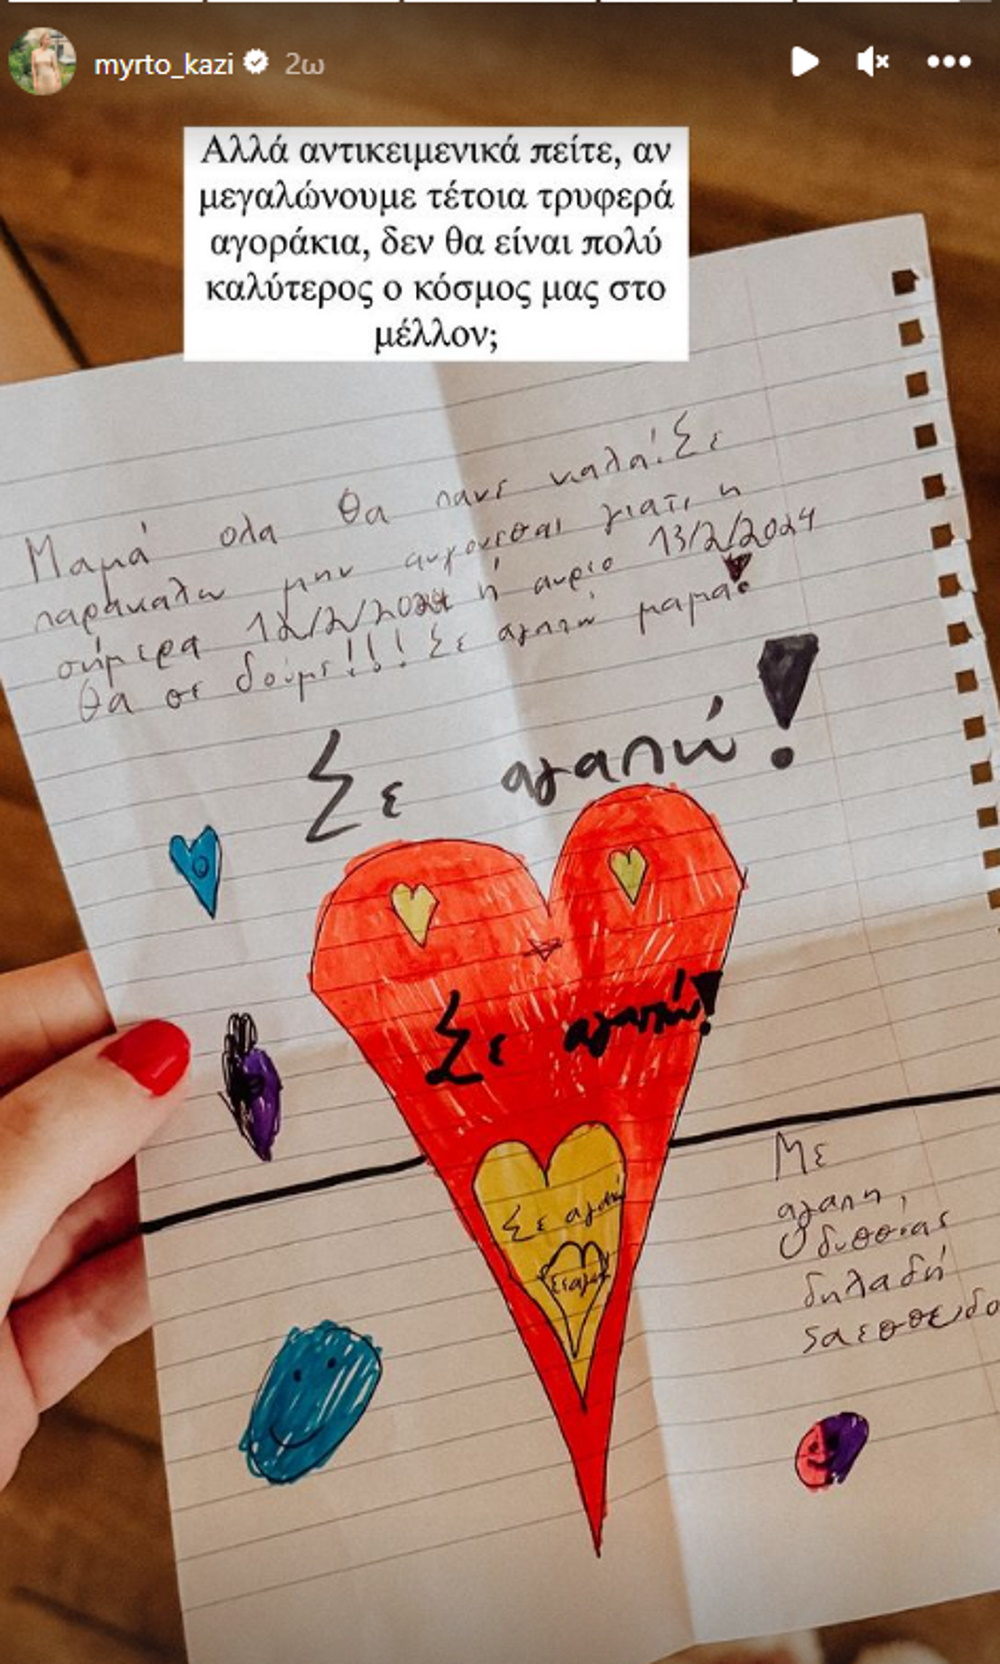 myrto_kazi 2ω
Αλλά αντικειμενικά πείτε, αν
μεγαλώνουμε τέτοια τρυφερά
αγοράκια, δεν θα είναι πολύ
καλύτερος ο κόσμος μας στο
μέλλον;
Μαμά ολα θα πανε καλα! Σε
παρακαλω μην αγχονεσαι γιατι η
σήμερα 12/2/2024 ή αυριο 13/2/2024
θα σε δούμε!!! Σε αγαπώ μαμα!
Σε αγαπώ!
Σε αγαπώ!
Σε αγαπώ
Με
αγαπη,
Οδυσσέας
δηλαδή